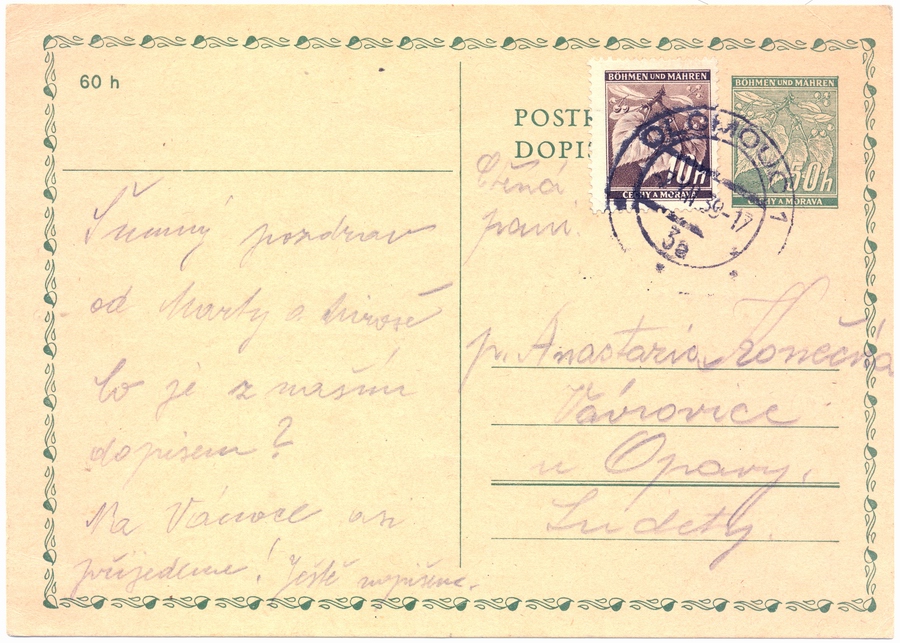 60 h
POSTK
DOPIS
BÖHMEN UND MÄHREN
10h
ČECHY A MORAVA
BÖHMEN UND MÄHREN
50h
ČECHY A MORAVA
OLOMOUC 1
39-17
3a
Šumný pozdrav
od Marty a
Co je z naším
dopisem?
Na Vánoce asi
přijedeme! Ještě napíšeme.
Ctěná
paní.
p. Anastazia Konečná
Vávrovice
u Opavy.
Sudety.